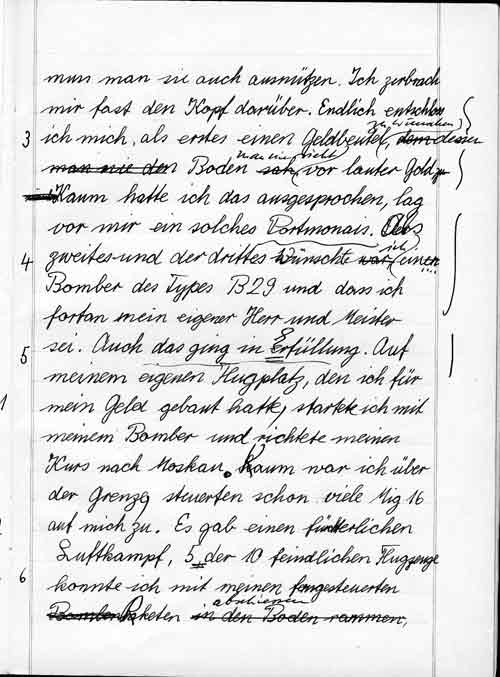 muss man sie auch ausnützen. Ich zerbrach
mir fast den Kopf darüber. Endlich entschloss
zu wünschen
3 ich mich, als erstes einen Geldbeutel, dem dessen
man nie nicht
man nie den Boden sah, vor lauter Gold zu
Kaum hatte ich das ausgesprochen, lag
vor mir ein solches Portmonais. Als
ich
4 zweites und der drittes wünschte war einen
Bomber des Types B29 und dass ich
fortan mein eigener Herr und Meister
5 sei. Auch das ging in Erfüllung. Auf
meinem eigenen Flugplatz, den ich für
mein Geld gebaut hatte, startete ich mit
meinem Bomber und richtete meinen
Kurs nach Moskau. Kaum war ich über
der Grenze, steuerten schon viele Mig 16
auf mich zu. Es gab einen fürchterlichen
Luftkampf, 5 der 10 feindlichen Flugzeuge
6 konnte ich mit meinen ferngesteuerten
abschiessen
Bomben Raketen in den Boden rammen,